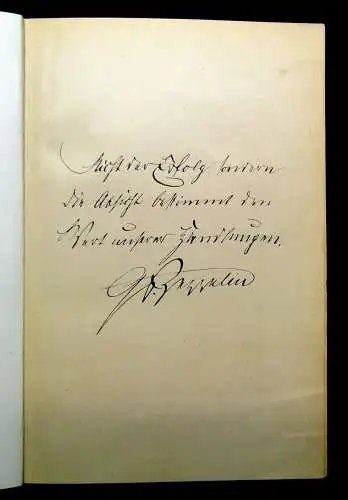 Nicht der Erfolg sondern
die Absicht bestimmt den
Wert unserer Handlungen.
Gf. Zeppelin